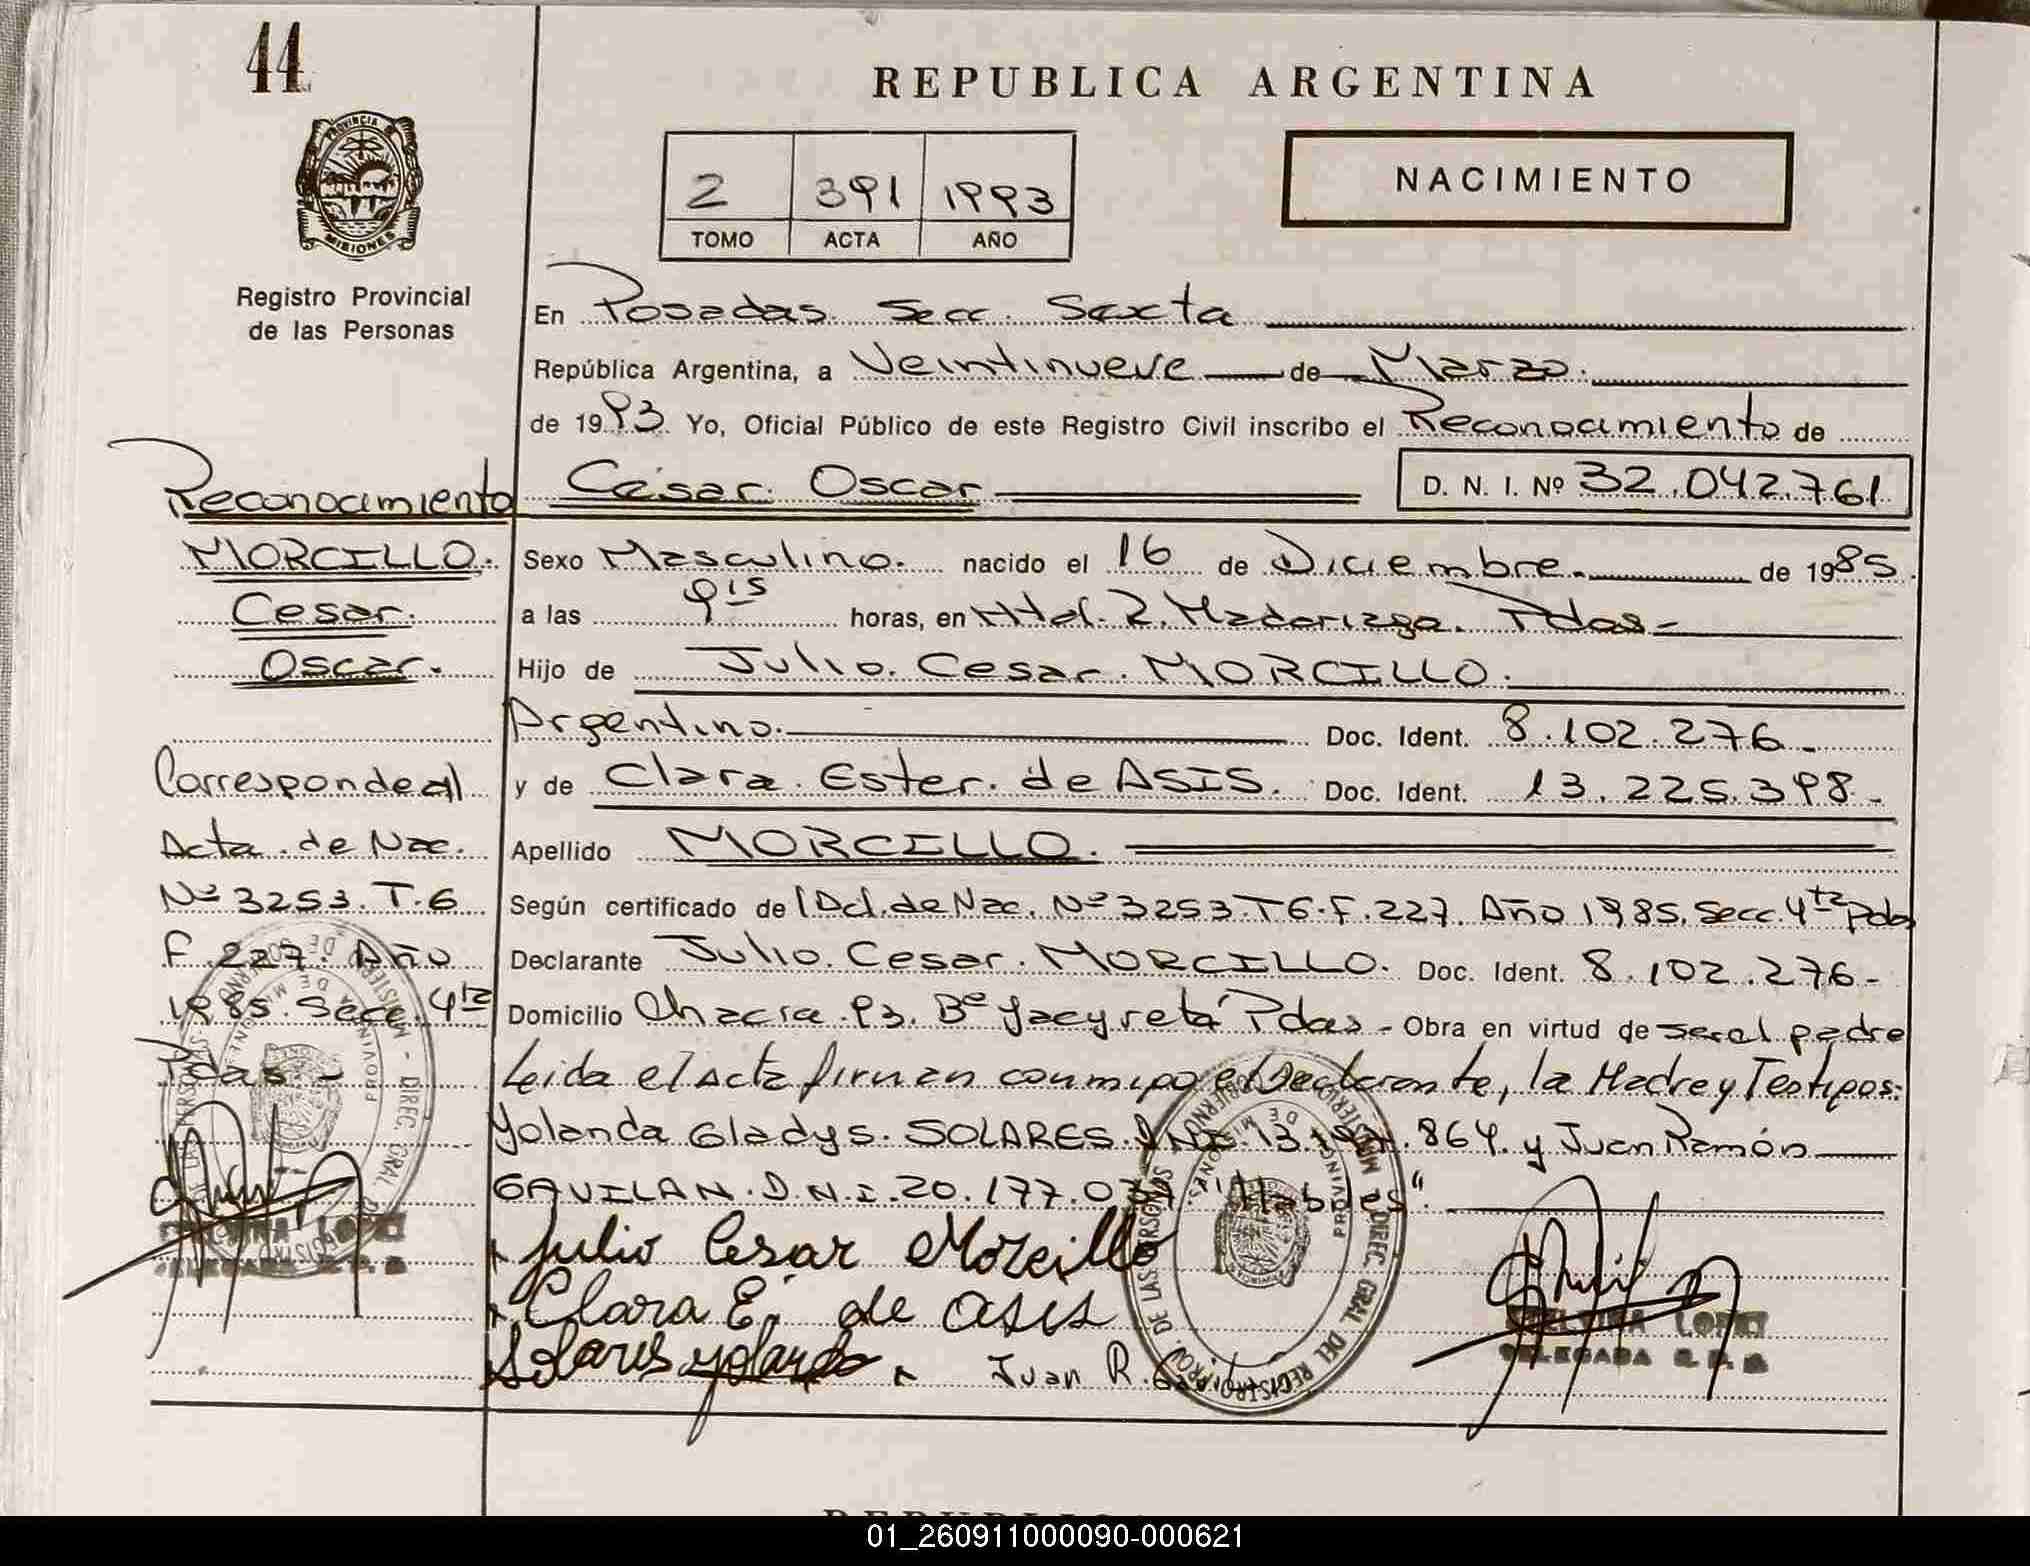 44
REPUBLICA ARGENTINA
PROVINCIA DE
MISIONES
Registro Provincial
de las Personas
2 391 1993
TOMO ACTA AÑO
NACIMIENTO
En Posadas. Secc. Sexta
República Argentina, a Veintinueve de Marzo.
de 1993. Yo, Oficial Público de este Registro Civil inscribo el Reconocimiento de
César Oscar D. N. I. Nº 32.042.761
Sexo Masculino. nacido el 16 de Diciembre. de 1985.
a las 9 15 horas, en Htal. R. Madariaga. Pdas-
Hijo de Julio. Cesar. MORCILLO.
Argentino. Doc. Ident. 8.102.276-
y de Clara. Ester. de ASIS. Doc. Ident. 13.225.398-
Apellido MORCILLO.
Según certificado de Act. de Nac. Nº 3253. T6. F. 227. Año 1985. Secc. 4ta Pdas
Declarante Julio. Cesar. MORCILLO. Doc. Ident. 8.102.276-
Domicilio Chacra. 93. Bº Yacyretá Pdas- Obra en virtud de ser el padre
Leida el Acta firman conmigo el Declarante, la Madre y Testigos:
Yolanda Gladys. SOLARES. 864. y Juan Ramón
GAVILAN. D.N.I. 20.177. "Habiles".
Julio Cesar Morcillo
Clara E. de asis
Solares yolanda
Juan R.
Reconocimiento
MORCILLO.
Cesar.
Oscar.
Corresponde al
Acta. de Nac.
Nº 3253. T. 6
F. 227. Año
1985. Secc. 4ta
Pdas-
LOPEZ
DELEGADA
LOPEZ
DELEGADA
DIREC. GRAL DEL REGISTRO PROV. DE LAS PERSONAS
PROVINCIA DE MISIONES
REPUBLICA
01_260911000090-000621